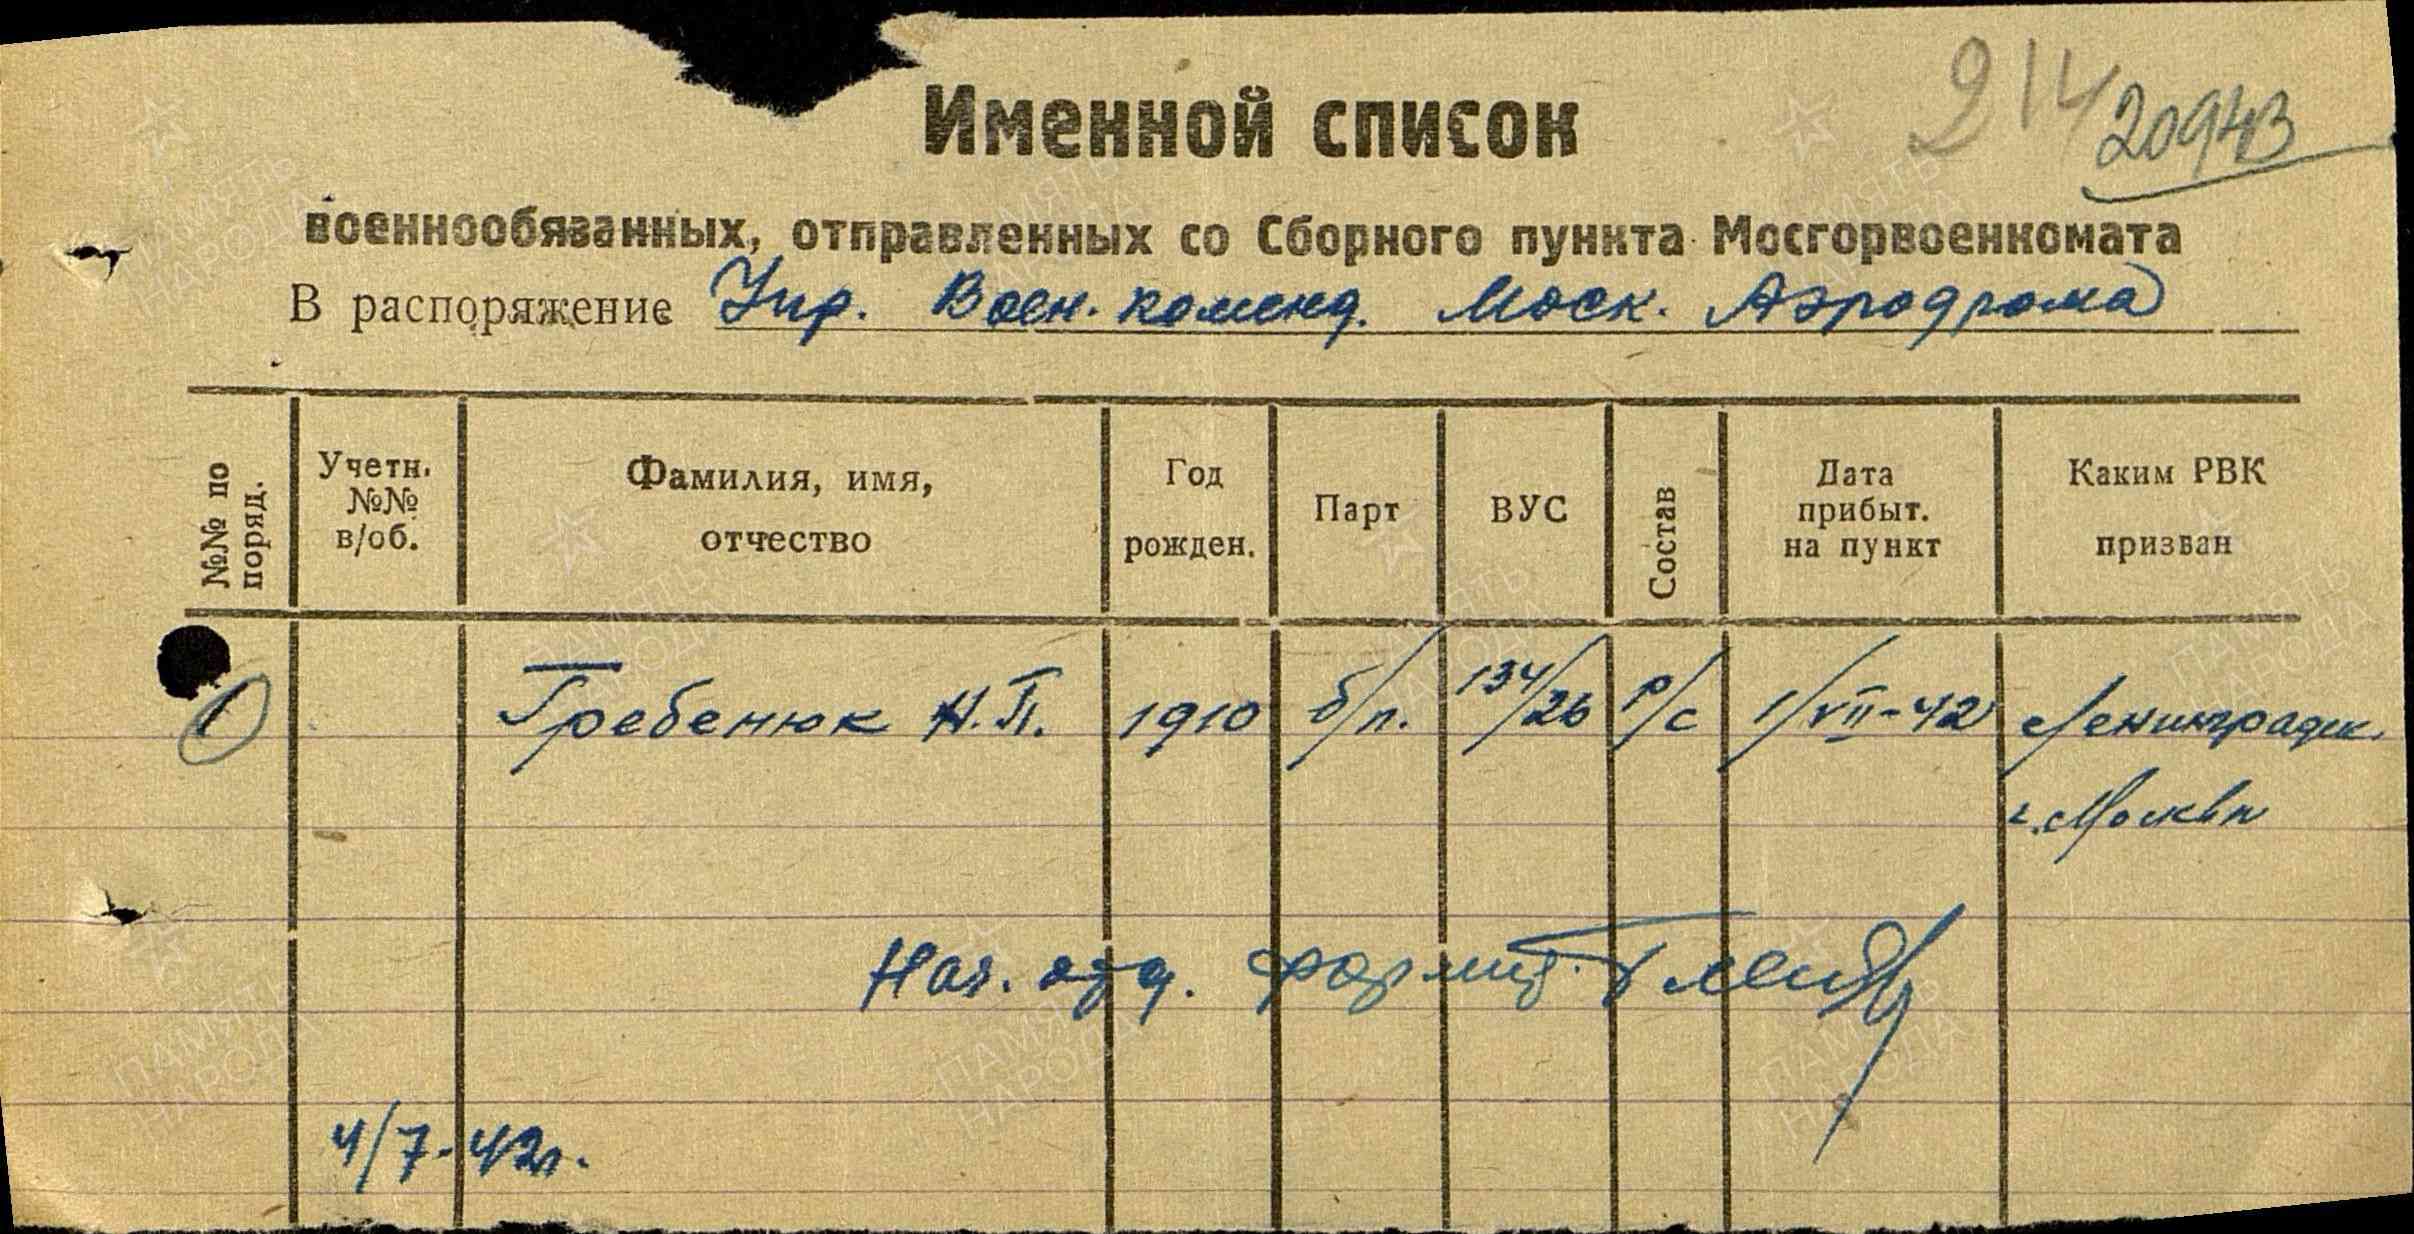 214
20943
Именной список
военнообязанных, отправленных со Сборного пункта Мосгорвоенкомата
В распоряжение Упр. Воен. коменд. Моск. Аэродрома
№№ по поряд.
Учетн. №№ в/об.
Фамилия, имя, отчество
Год рожден.
Парт
ВУС
Состав
Дата прибыт. на пункт
Каким РВК призван
1 Гребенюк Н.П. 1910 б/п. 134/26 р/с 1/VII-42 Ленинградск.
г. Москвы
Нач. отд. формир.
4/7-42г.
ПАМЯТЬ НАРОДА